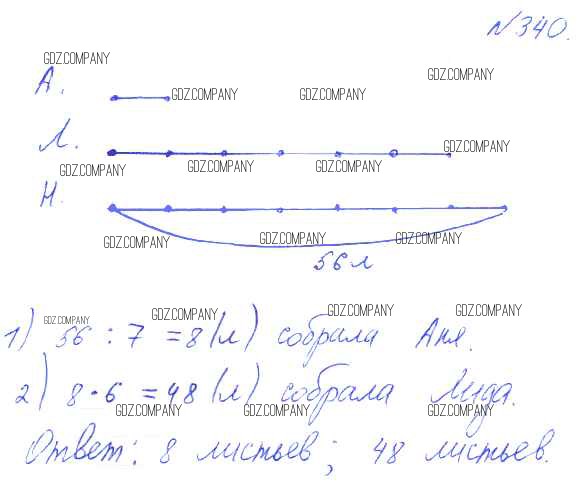 №340.
GDZ.COMPANY
А.
GDZ.COMPANY
GDZ.COMPANY GDZ.COMPANY
Л.
GDZ.COMPANY
GDZ.COMPANY GDZ.COMPANY GDZ.COMPANY
Н.
GDZ.COMPANY GDZ.COMPANY GDZ.COMPANY
56 л
GDZ.COMPANY GDZ.COMPANY GDZ.COMPANY GDZ.COMPANY
1) 56 : 7 = 8 (л) собрала Аня.
2) 8 · 6 = 48 (л) собрала Люда.
GDZ.COMPANY GDZ.COMPANY GDZ.COMPANY
Ответ: 8 листьев; 48 листьев.